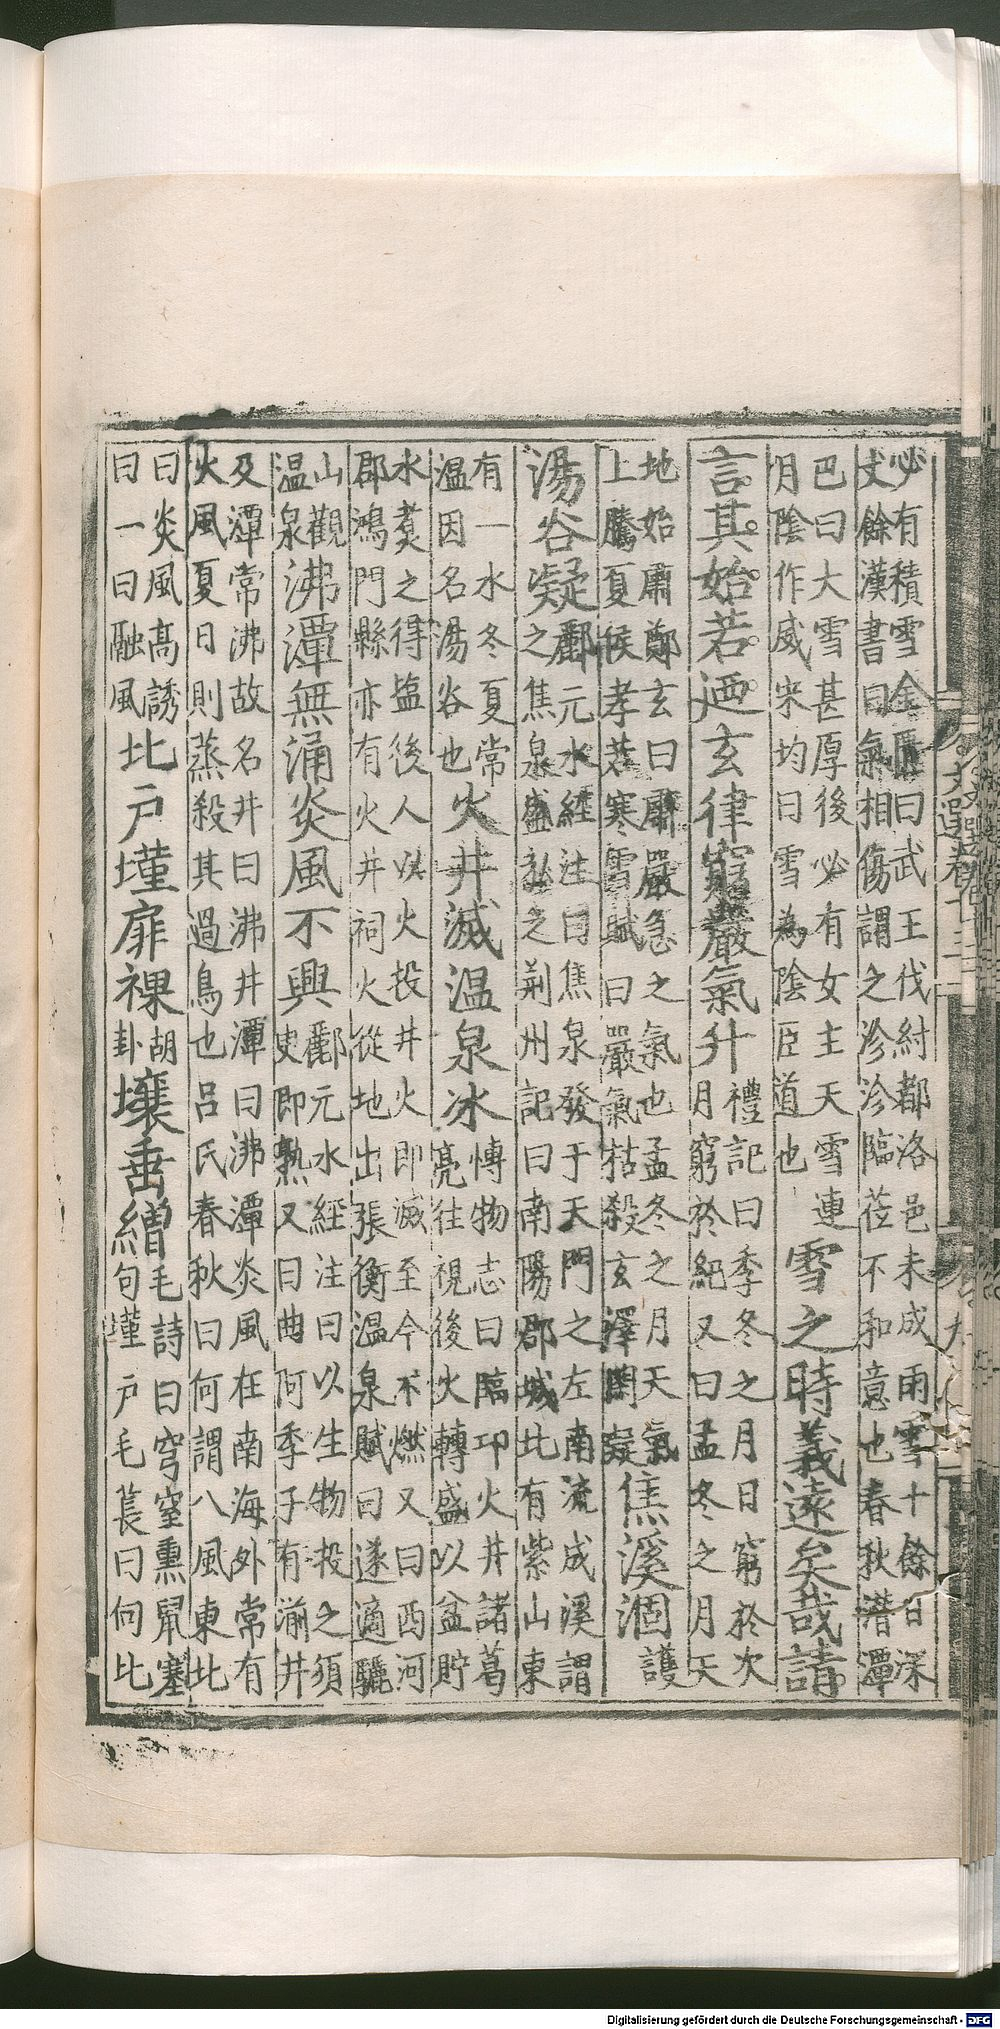 必有積雪金匱曰武王伐紂都洛邑未成雨雪十餘日深
丈餘漢書曰氣相傷謂之沴沴臨莅不和意也春秋潛潭
巴曰大雪甚厚後必有女主天雪連
月陰作威宋均曰雪為陰臣道也
雪之時義遠矣哉請
言其始若迺玄律窮嚴氣升
禮記曰季冬之月日窮於次
月窮於紀又曰孟冬之月天
地始肅鄭玄曰肅嚴急之氣也孟冬之月天氣
上騰夏侯孝若寒雪賦曰嚴氣枯殺玄澤閉凝
焦溪涸
護
湯谷凝
酈元水經注曰焦泉發于天門之左南流成溪謂
之焦泉盛弘之荆州記曰南陽郡城北有紫山東
有一水冬夏常
温因名湯谷也
火井滅温泉冰
博物志曰臨邛火井諸葛
亮往視後火轉盛以盆貯
水煑之得塩後人以火投井火即滅至今不燃又曰西河
郡鴻門縣亦有火井祠火從地出張衡温泉賦曰遂適驪
山觀
温泉
沸潭無涌炎風不興
酈元水經注曰以生物投之須
㬰即熟又曰曲阿季子有湔井
及潭常沸故名井曰沸井潭曰沸潭炎風在南海外常有
火風夏日則蒸殺其過鳥也吕氏春秋曰何謂八風東北
曰炎風高誘
曰一曰融風
北户墐扉裸
胡
卦
壤垂繒
毛詩曰穹窒熏鼠塞
句墐户毛萇曰向北
文選卷十三
九
Digitalisierung gefördert durch die Deutsche Forschungsgemeinschaft - DFG